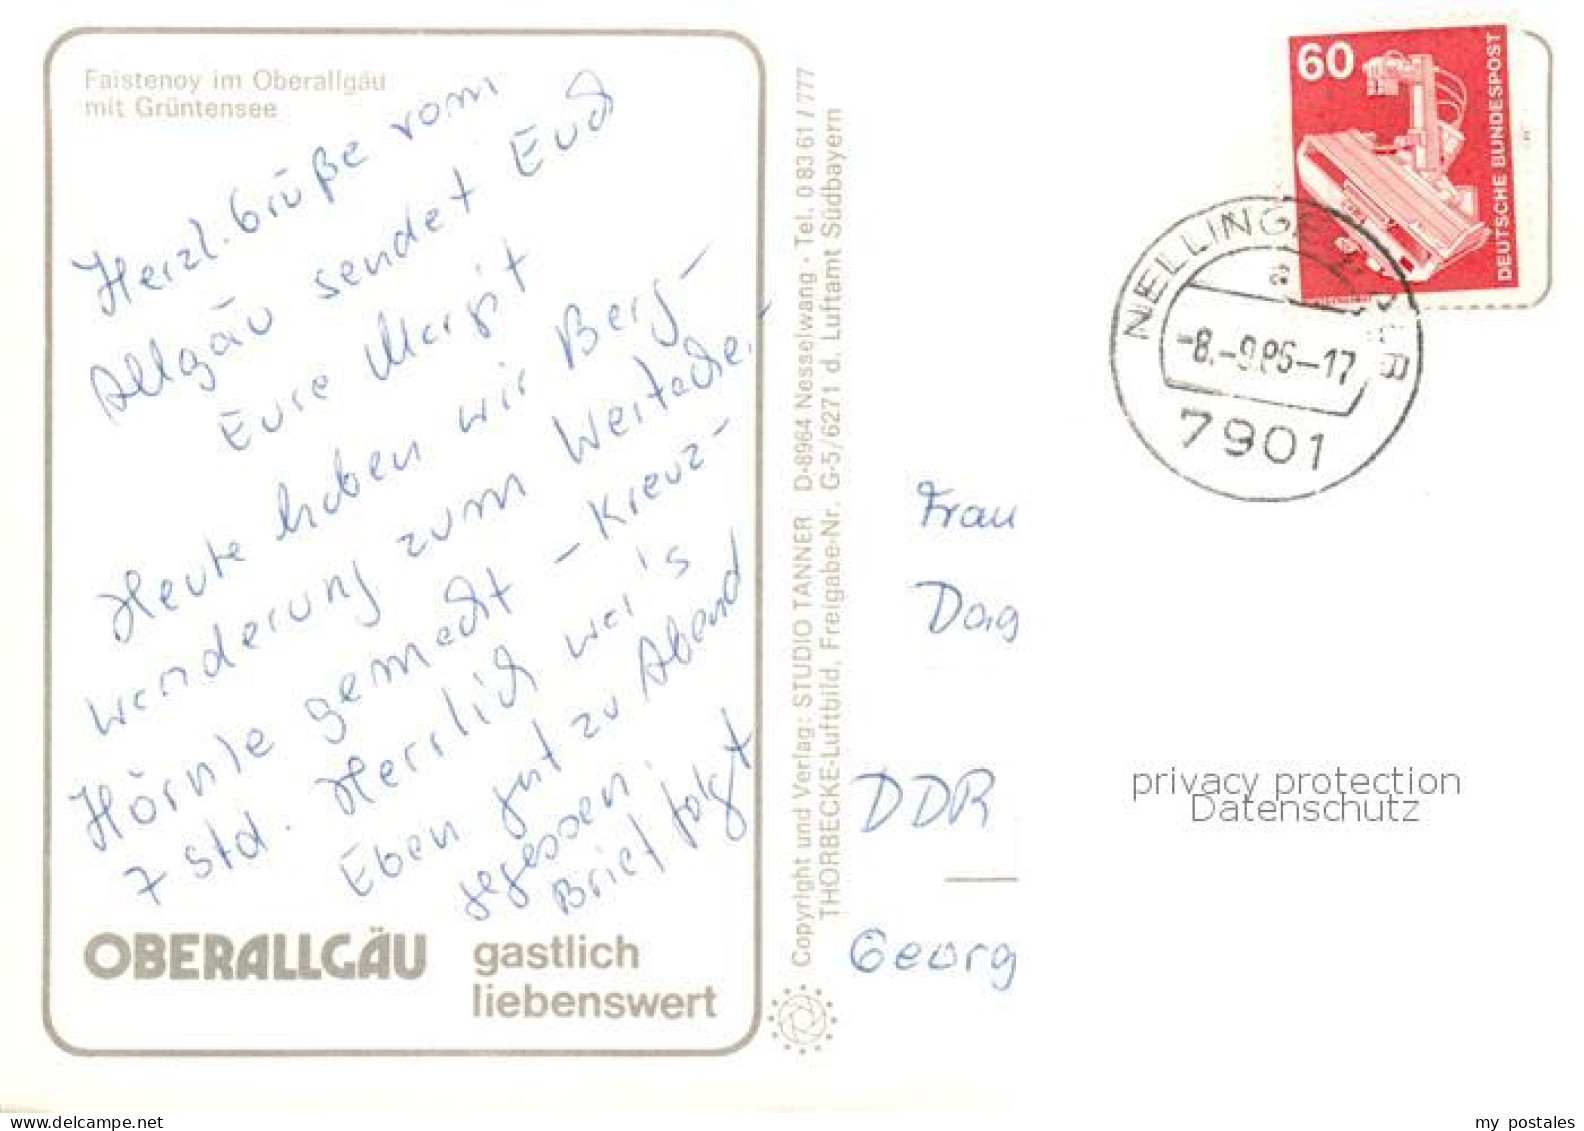 Faistenoy im Oberallgäu
mit Grüntensee
Herzl. Grüße vom
Allgäu sendet Euch
Eure Margit
Heute haben wir Berg-
wanderung zum
Hörnle gemacht - Kreuz-
7 Std. Herrlich war's
Eben gut zu Abend
gegessen.
Brief folgt
OBERALLGÄU gastlich
liebenswert
Copyright und Verlag: STUDIO TANNER D-8964 Nesselwang · Tel. 0 83 61 / 777
THORBECKE-Luftbild, Freigabe-Nr. G-5/6271 d. Luftamt Südbayern
60
DEUTSCHE BUNDESPOST
NELLINGEN
a
-8.-9.86-17
7901
Frau
Dag
DDR
Georg
privacy protection
Datenschutz
my postales